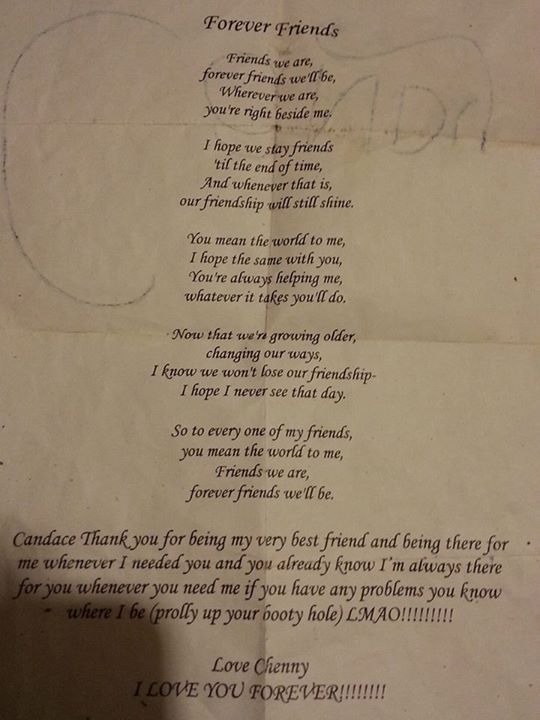 Forever Friends
Friends we are,
forever friends we'll be,
Wherever we are,
you're right beside me.
I hope we stay friends
'til the end of time,
And whenever that is,
our friendship will still shine.
You mean the world to me,
I hope the same with you,
You're always helping me,
whatever it takes you'll do.
Now that we're growing older,
changing our ways,
I know we won't lose our friendship-
I hope I never see that day.
So to every one of my friends,
you mean the world to me,
Friends we are,
forever friends we'll be.
Candace Thank you for being my very best friend and being there for
me whenever I needed you and you already know I'm always there
for you whenever you need me if you have any problems you know
where I be (prolly up your booty hole) LMAO!!!!!!!!!
Love Chenny
I LOVE YOU FOREVER!!!!!!!!